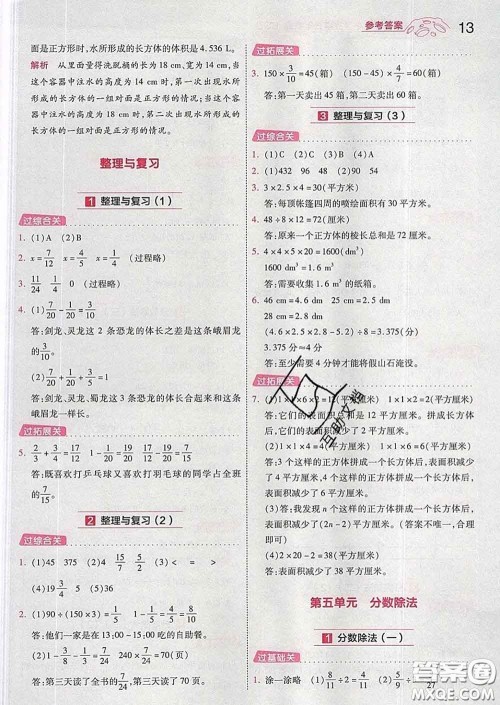 参考答案 13
面是正方形时,水所形成的长方体的体积是 4.536 L。
解析 从里面量得洗脱桶的长为 18 cm,宽为 14 cm,当这个容器中注水的高度为 14 cm 时,第一次出现水所形成的长方体的一组对面是正方形的情况;当这个容器中注水的高度为 18 cm 时,第二次出现水所形成的长方体的一组对面是正方形的情况。
整理与复习
1 整理与复习(1)
过综合关
1. (1)A (2)B
2. x=7/12 x=3/5 x=1/4 (过程略)
3. 11/24 1/4 0 (过程略)
4. (1)7/20-1/20=3/10
答:剑龙、灵龙这 2 条恐龙的体长之差是这条峨眉龙的3/10。
答:剑龙、灵龙、蜀龙这 3 条恐龙的体长合起来比这条峨眉龙体长。
过拓展关
答:既喜欢打乒乓球又喜欢打羽毛球的同学占全班的7/15。
2 整理与复习(2)
过综合关
1. (1)45 375 (2)4 15/7 5/2 (3)< = >
(4)19 3/4 5 (5)2
答:他们一家人在 13:00~15:00 吃的自助餐。
答:第三天读了全书的7/24,第三天读了 70 页。
过拓展关
3. 150×3/10=45(箱) 150×4/10=60(箱)
答:第一天卖出 45 箱,第二天卖出 60 箱。
3 整理与复习(3)
过综合关
1. (1)C (2)D (3)B (4)A
2. (1)432 490 (2)96 54
3. 3×2.5×4=30(平方米)
答:每顶帐篷四周的喷绘面积有 30 平方米。
4. 48÷8×12=72(厘米)
答:原来一个正方体的棱长总和是 72 厘米。
5. 4×4×5×20=1600(dm³)
1600 dm³=1.6 m³
答:需要收集 1.6 m³ 的纸箱。
6. 46 cm=4.6 dm 25 cm=2.5 dm
28 cm=2.8 dm
(4.6×2.5×2.8-5.2)÷8=3.375(分)
3.375 分≈4 分
答:至少需要 4 分钟才能将假山石淹没。
过拓展关
7. (1)1×1×6×2=12(平方厘米) 1×1×2=2(平方厘米)
答:它们的表面积总和是 12 平方厘米。拼成长方体后,表面积减少了 2 平方厘米。
(2)1×1×4=4(平方厘米)
答:3 个这样的正方体拼成一个长方体后,表面积减少了 4 平方厘米;4 个这样的正方体拼成一个长方体后,表面积减少了 6 平方厘米。
(3)答:把 n 个这样的正方体拼成一个长方体后,表面积减少了(2n-2)平方厘米。(答案不唯一,合理即可。)
(4)2×20-2=38(平方厘米)
答:表面积减少了 38 平方厘米。
第五单元 分数除法
1 分数除法(一)
过基础关
互助文档
答案圈
MXQE.COM